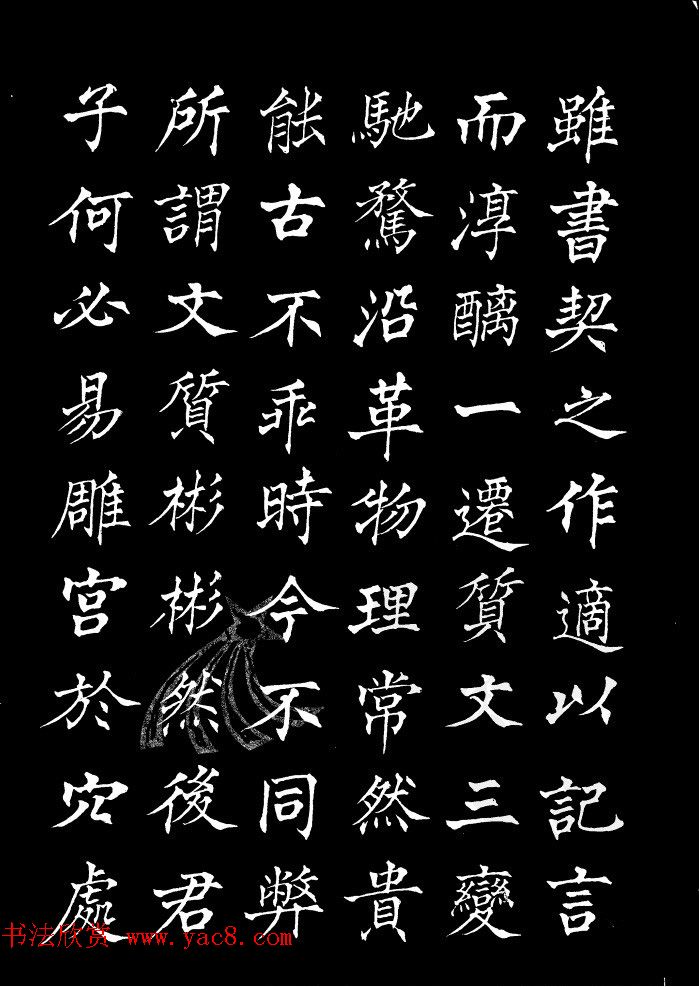 雖書契之作適以記言
而淳醨一遷質文三變
馳騖沿革物理常然貴
能古不乖時今不同弊
所謂文質彬彬然後君
子何必易雕宮於穴處
书法欣赏 www.yac8.com